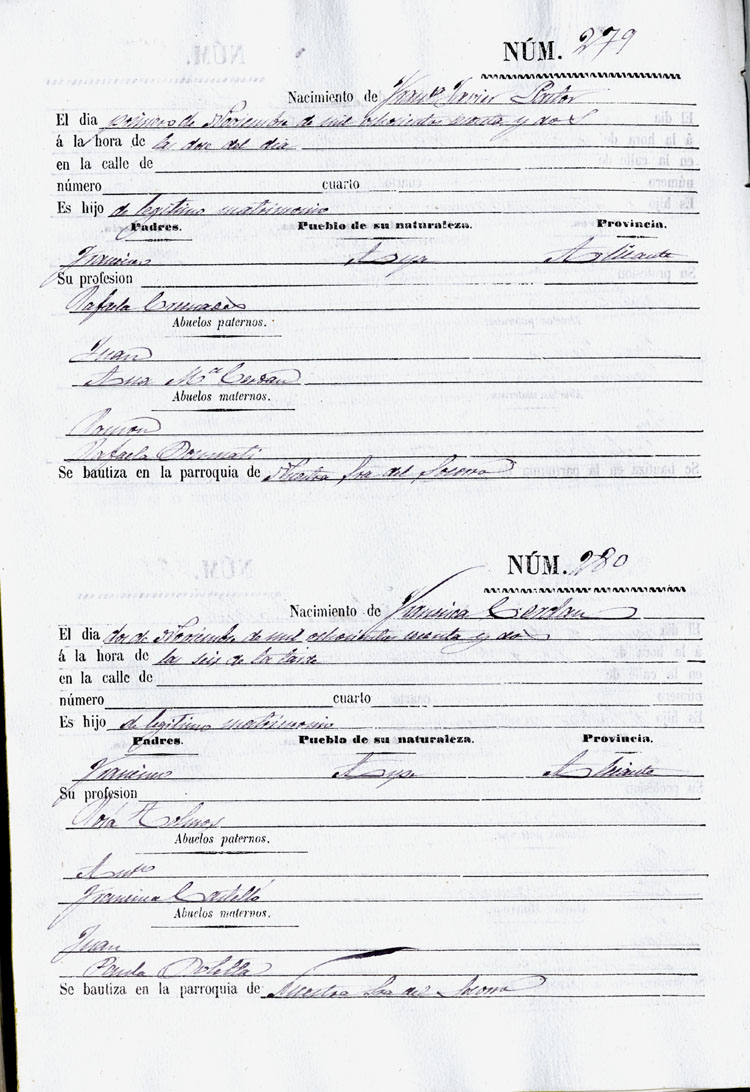 NÚM. 279
Nacimiento de Franco Xavier Pastor
El dia primero de Noviembre de mil ochocientos noventa y dos
á la hora de las doce del dia
en la calle de
número cuarto
Es hijo de legitimo matrimonio
Padres. Pueblo de su naturaleza. Provincia.
Francisco Aspe Alicante
Su profesion
Rafaela Cremades
Abuelos paternos.
Juan
Ana Ma Cerdán
Abuelos maternos.
Ramón
Rafaela
Se bautiza en la parroquia de Nuestra Sra del Socorro
NÚM. 280
Nacimiento de Francisca Cerdan
El dia dos de Noviembre de mil ochocientos noventa y dos
á la hora de las seis de la tarde
en la calle de
número cuarto
Es hijo de legitimo matrimonio
Padres. Pueblo de su naturaleza. Provincia.
Francisco Aspe Alicante
Su profesion
Rosa
Abuelos paternos.
Anto
Francisca Castelló
Abuelos maternos.
Juan
Se bautiza en la parroquia de Nuestra Sra del Socorro